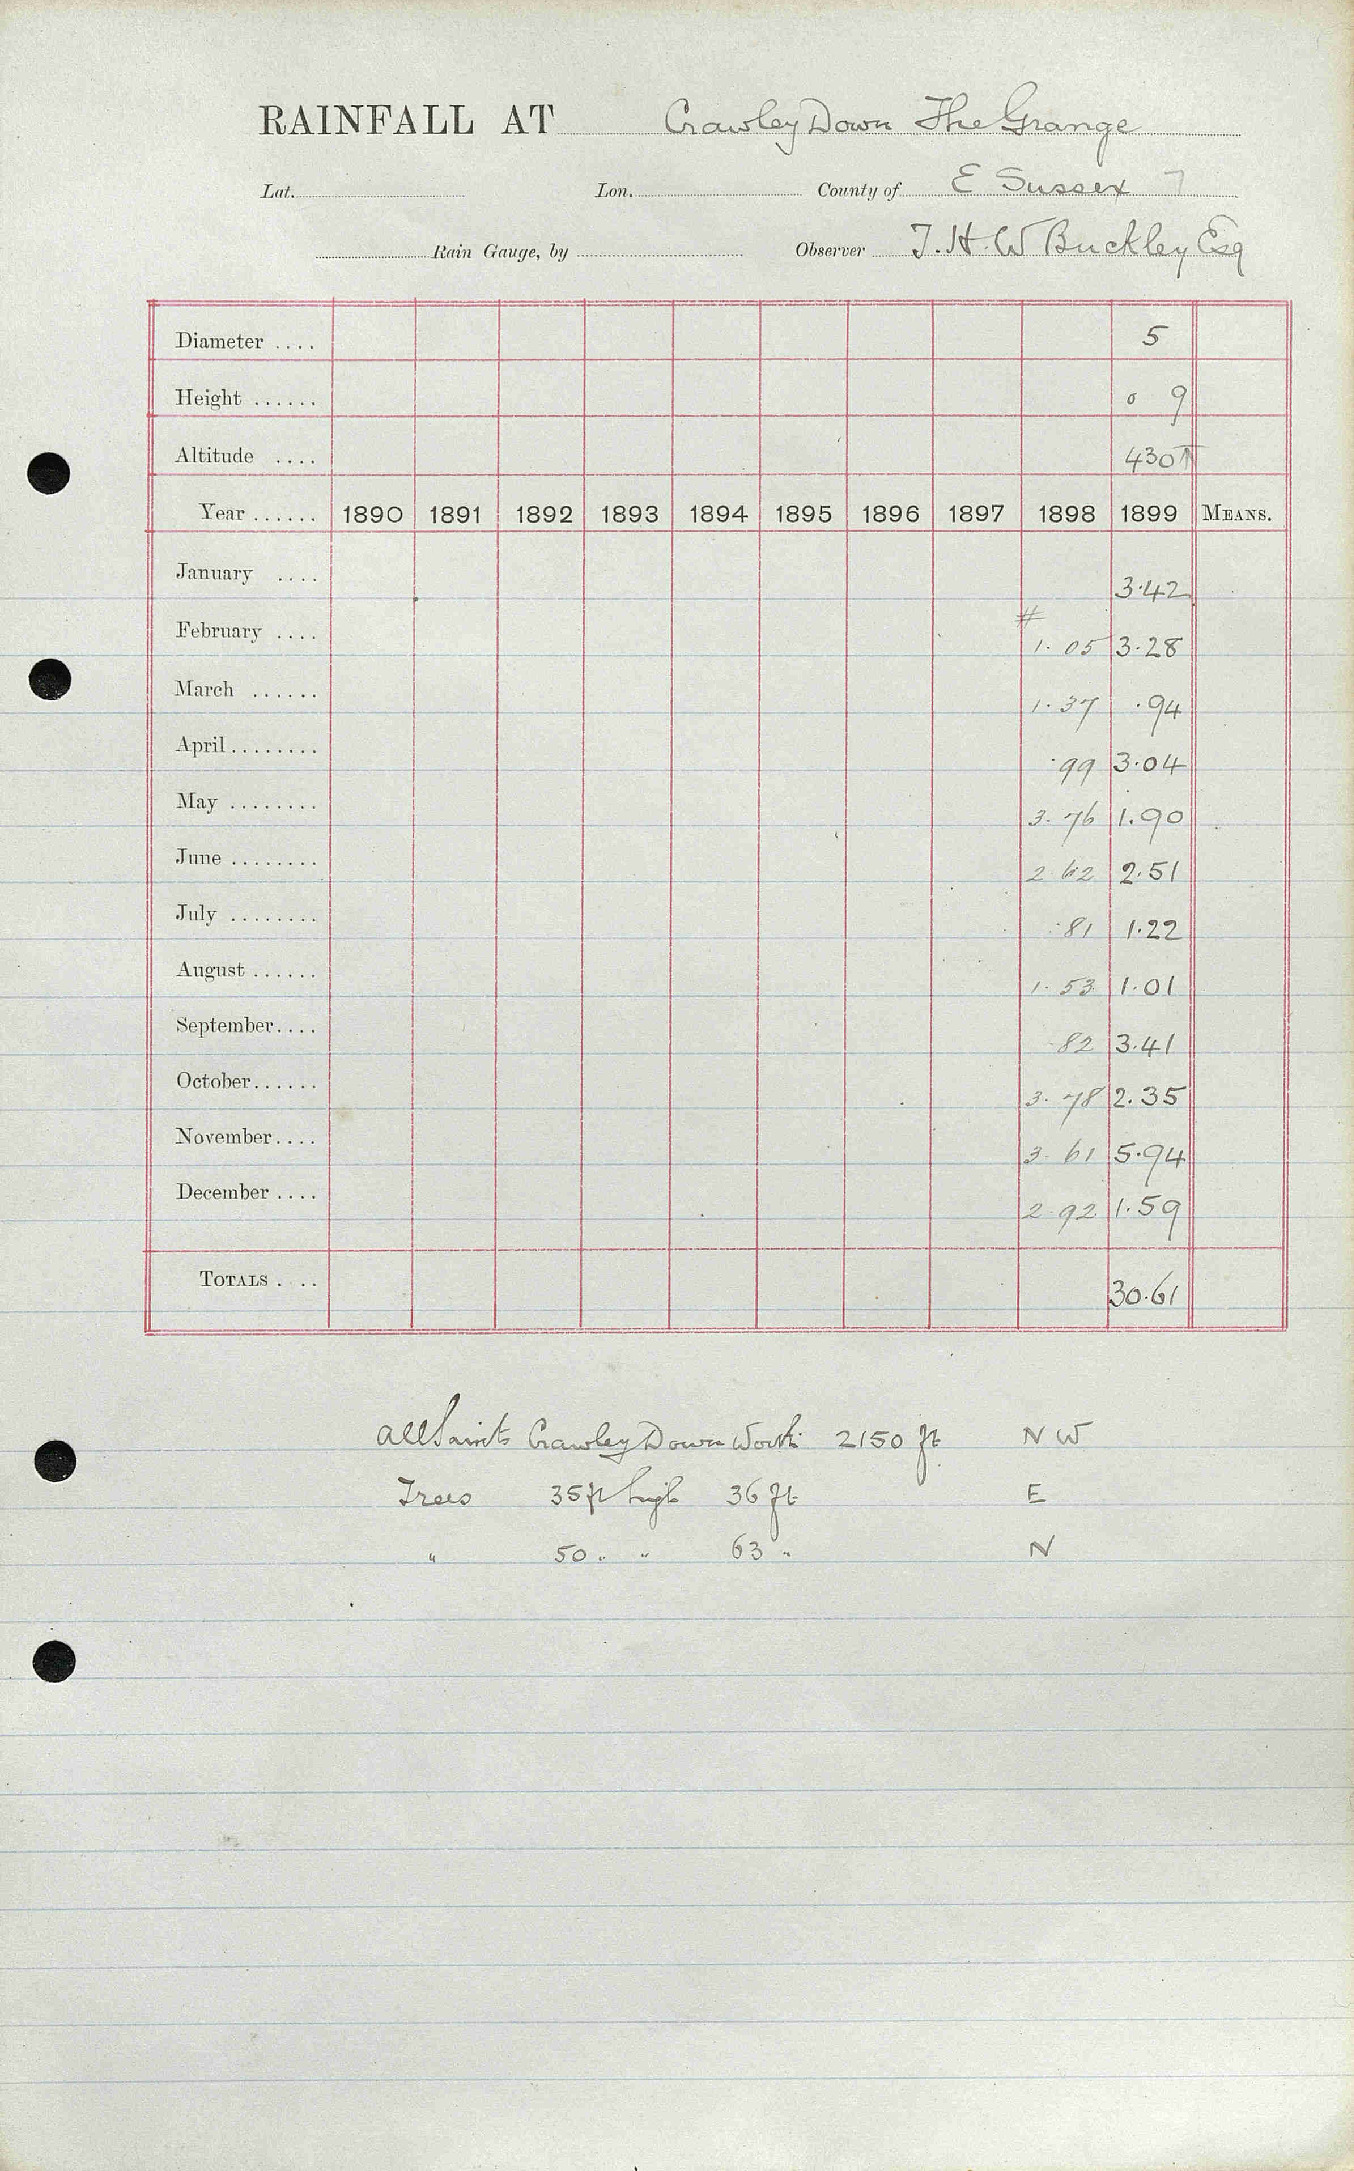 RAINFALL AT Crawley Down The Grange
Lat. Lon. County of E Sussex 7
Rain Gauge, by Observer T. H. W Buckley Esq
Diameter .... 5
Height ...... 0 9
Altitude .... 430 T
Year ...... 1890 1891 1892 1893 1894 1895 1896 1897 1898 1899 MEANS.
January .... 3.42
#
February .... 1.05 3.28
March ...... 1.37 .94
April ........ .99 3.04
May ........ 3.76 1.90
June ........ 2 62 2.51
July ........ .81 1.22
August ...... 1.53 1.01
September.... .82 3.41
October...... 3.78 2.35
November.... 3.61 5.94
December .... 2.92 1.59
TOTALS . .. 30.61
All Saints Crawley Down 2150 ft N W
Trees 35 ft high 36 ft E
" 50 " " 63 " N